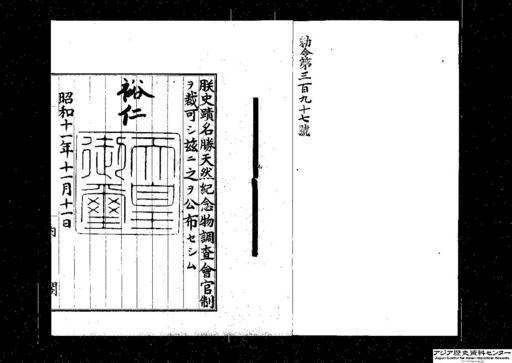 勅令第三百九十七號
朕史蹟名勝天然紀念物調査會官制
ヲ裁可シ茲ニ之ヲ公布セシム
裕仁
天皇御璽
昭和十一年十一月十一日
内
閣
アジア歴史資料センター
Japan Center for Asian Historical Records